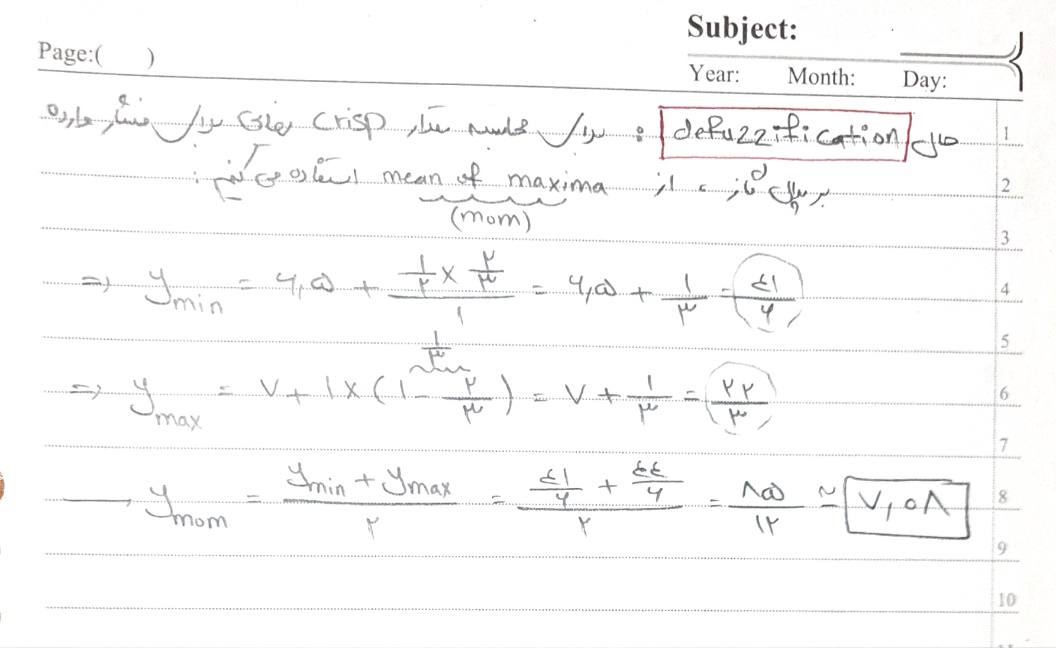 Subject:
Page:( )
Year: Month: Day:
1 حال defuzzification : برای محاسبه مقدار crisp نهایی برای فشار وارده
2 بر پدال گاز ، از mean of maxima استفاده می کنیم :
(mom)
3
4 ⇒ y_min = ۶,۵ + (۱/۲ × ۲/۳)/۱ = ۶,۵ + ۱/۳ = ۴۱/۶
5 ۱/۳
6 ⇒ y_max = ۷ + ۱ × (۱ - ۲/۳) = ۷ + ۱/۳ = ۲۲/۳
7
8 → y_mom = (y_min + y_max)/۲ = (۴۱/۶ + ۴۴/۶)/۲ = ۸۵/۱۲ ≃ ۷,۰۸
9
10